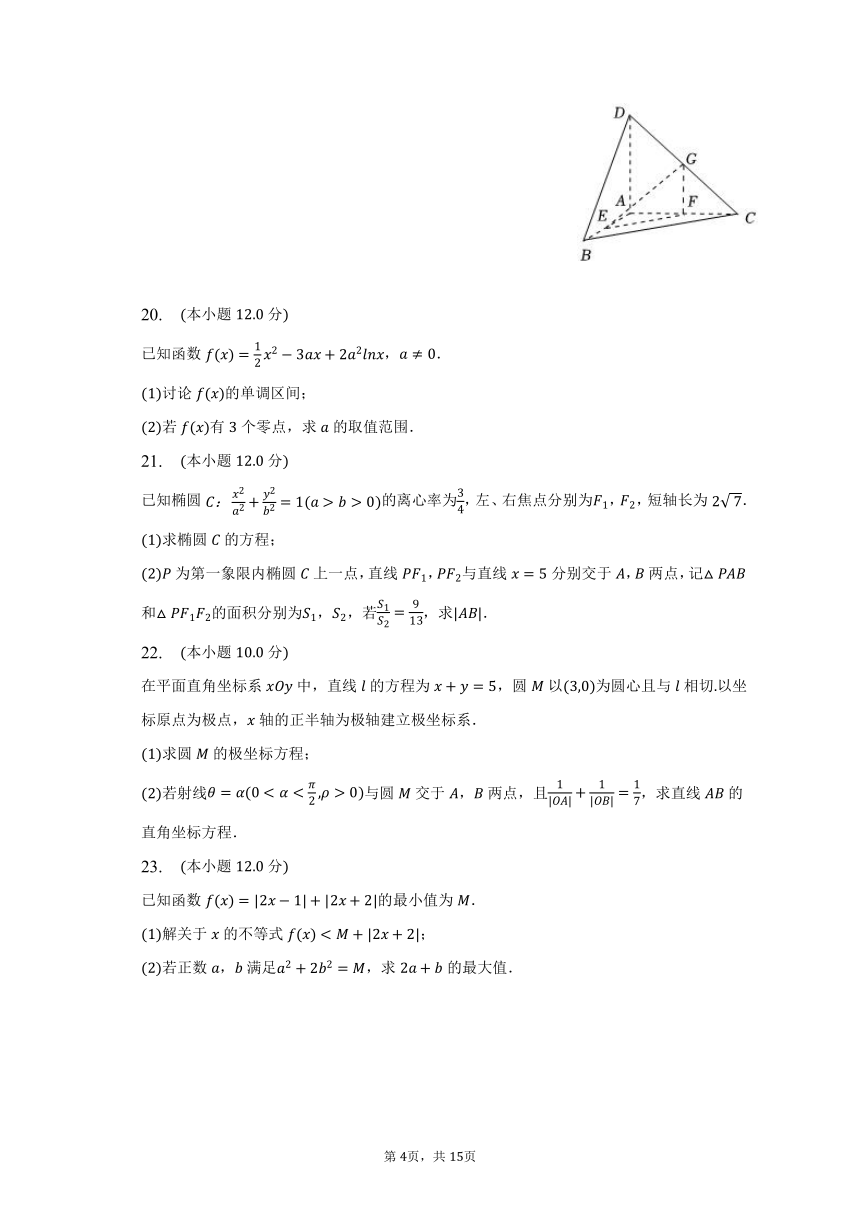 D
G
A
F
E
C
B
20. (本小题 12.0 分)
已知函数 f(x) = 1/2 x² − 3ax + 2a²lnx，a ≠ 0．
(1)讨论 f(x)的单调区间；
(2)若 f(x)有 3 个零点，求 a 的取值范围．
21. (本小题 12.0 分)
已知椭圆 C：x²/a² + y²/b² = 1(a > b > 0)的离心率为3/4，左、右焦点分别为F₁，F₂，短轴长为 2√7．
(1)求椭圆 C 的方程；
(2)P 为第一象限内椭圆 C 上一点，直线 PF₁，PF₂与直线 x = 5 分别交于 A，B 两点，记△ PAB
和△ PF₁F₂的面积分别为S₁，S₂，若S₁/S₂ = 9/13，求|AB|．
22. (本小题 10.0 分)
在平面直角坐标系 xOy 中，直线 l 的方程为 x + y = 5，圆 M 以(3,0)为圆心且与 l 相切.以坐
标原点为极点，x 轴的正半轴为极轴建立极坐标系．
(1)求圆 M 的极坐标方程；
(2)若射线θ = α(0 < α < π/2,ρ > 0)与圆 M 交于 A，B 两点，且1/|OA| + 1/|OB| = 1/7，求直线 AB 的
直角坐标方程．
23. (本小题 12.0 分)
已知函数 f(x) = |2x − 1| + |2x + 2|的最小值为 M．
(1)解关于 x 的不等式 f(x) < M + |2x + 2|；
(2)若正数 a，b 满足a² + 2b² = M，求 2a + b 的最大值．
第 4页，共 15页